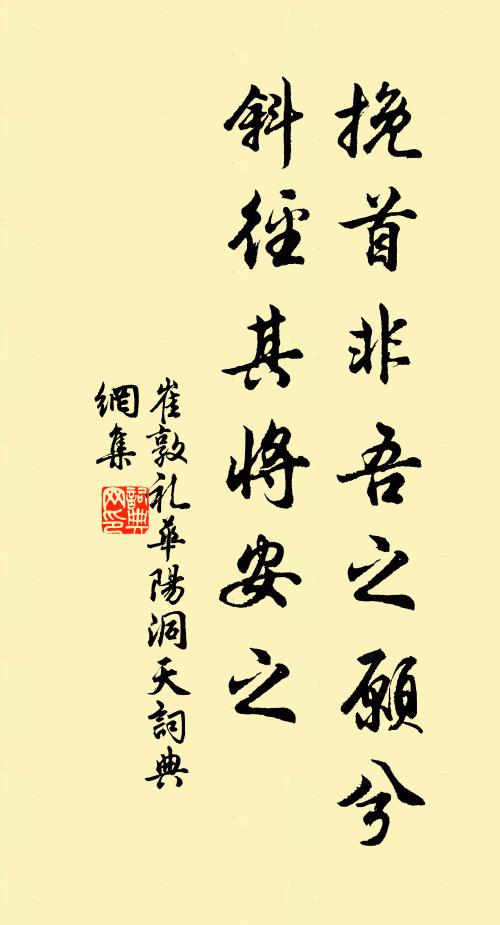 挽首非吾之願兮
斜徑其將安之
崔敦礼華陽洞天詞典
網集
詞典
网印